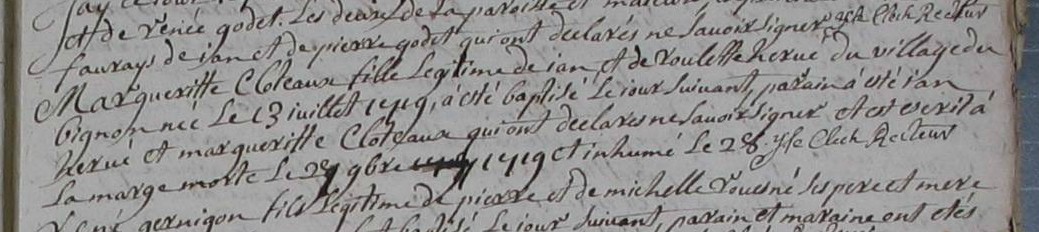 et de renée godet. Les deux de la paroisse et
fauvays de ian et de pierre godet qui ont declarés ne Savoir Signer Clech Recteur
Margueritte Cloteaux fille Legitime de ian et de roulette herué du village du
bignon neé Le 13 iuillet 1719, á esté baptisé Le iour Suivant, parain á esté ian
herué et margueritte Cloteaux qui ont declarés ne Savoir Signer et est escrit á
La marge morte Le 27 9bre 1719 et inhumé Le 28. Clech Recteur
René gernigon fils Legitime de pierre et de michelle rouesné Ses pere et mere
baptisé Le iour Suivant, parain et maraine ont etés